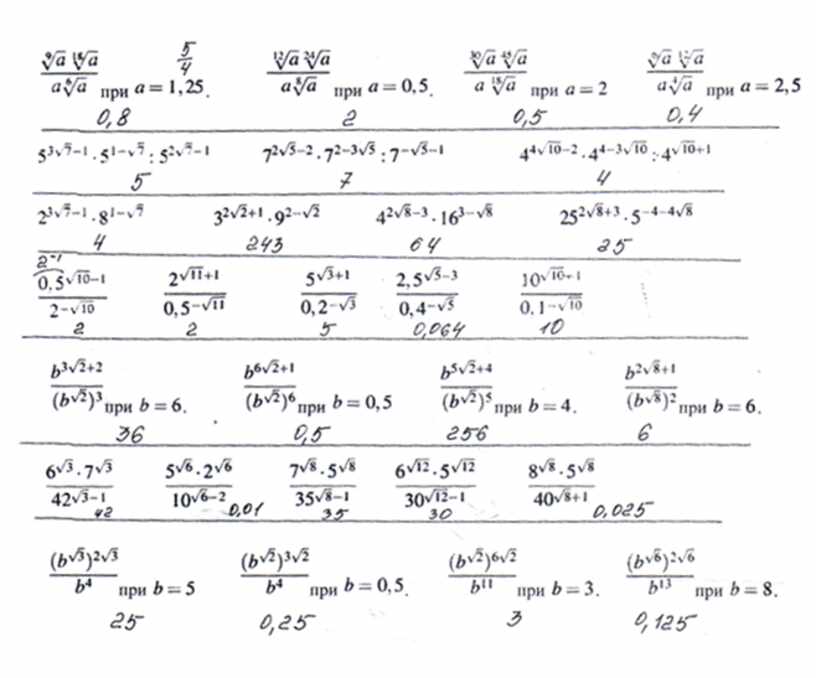 \frac{\sqrt[9]{a}\sqrt[18]{a}}{a\sqrt[6]{a}} при a = 1,25. \frac{5}{4} \frac{\sqrt[12]{a}\sqrt[24]{a}}{a\sqrt[8]{a}} при a = 0,5. \frac{\sqrt[30]{a}\sqrt[45]{a}}{a\sqrt[18]{a}} при a = 2 \frac{\sqrt[6]{a}\sqrt[12]{a}}{a\sqrt[4]{a}} при a = 2,5
0,8 2 0,5 0,4
5^{3√7−1} · 5^{1−√7} : 5^{2√7−1} 7^{2√5−2} · 7^{2−3√5} : 7^{−√5−1} 4^{4√10−2} · 4^{4−3√10} : 4^{√10+1}
5 7 4
2^{3√7−1} · 8^{1−√7} 3^{2√2+1} · 9^{2−√2} 4^{2√8−3} · 16^{3−√8} 25^{2√8+3} · 5^{−4−4√8}
4 243 64 25
2^{-1}
\frac{0,5^{√10−1}}{2^{−√10}} \frac{2^{√11+1}}{0,5^{−√11}} \frac{5^{√3+1}}{0,2^{−√3}} \frac{2,5^{√5−3}}{0,4^{−√5}} \frac{10^{√10+1}}{0,1^{−√10}}
2 2 5 0,064 10
\frac{b^{3√2+2}}{(b^{√2})^3} при b = 6. \frac{b^{6√2+1}}{(b^{√2})^6} при b = 0,5 \frac{b^{5√2+4}}{(b^{√2})^5} при b = 4. \frac{b^{2√8+1}}{(b^{√8})^2} при b = 6.
36 0,5 256 6
\frac{6^{√3} · 7^{√3}}{42^{√3−1}} \frac{5^{√6} · 2^{√6}}{10^{√6−2}} \frac{7^{√8} · 5^{√8}}{35^{√8−1}} \frac{6^{√12} · 5^{√12}}{30^{√12−1}} \frac{8^{√8} · 5^{√8}}{40^{√8+1}}
42 0,01 35 30 0,025
\frac{(b^{√3})^{2√3}}{b^4} при b = 5 \frac{(b^{√2})^{3√2}}{b^4} при b = 0,5. \frac{(b^{√2})^{6√2}}{b^{11}} при b = 3. \frac{(b^{√6})^{2√6}}{b^{13}} при b = 8.
25 0,25 3 0,125